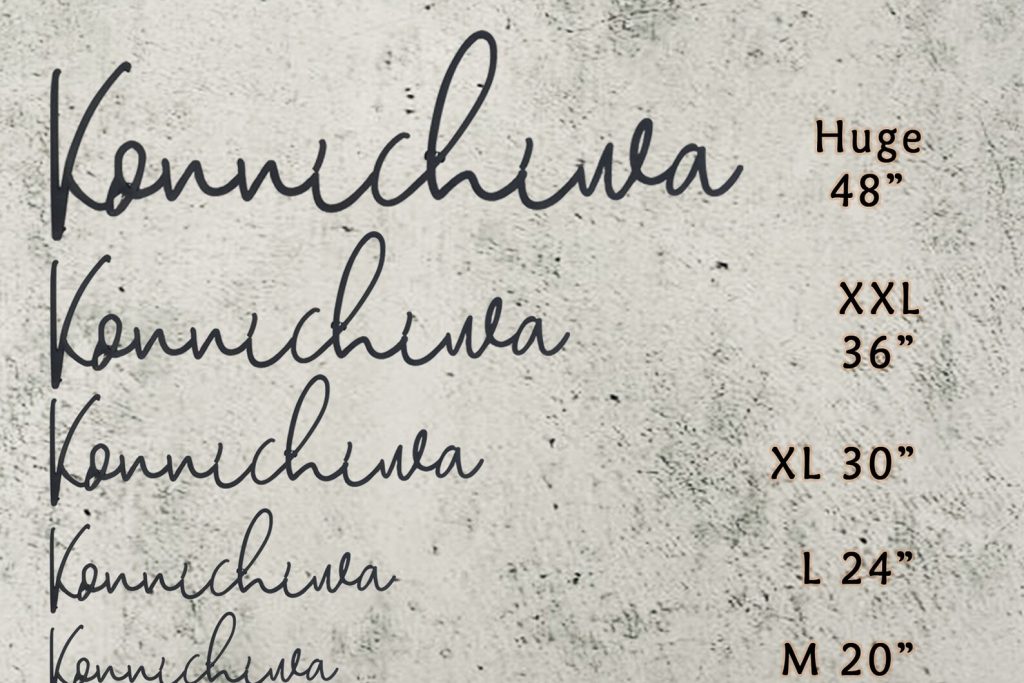 Konnichiwa
Huge
48”
Konnichiwa
XXL
36”
Konnichiwa
XL 30”
Konnichiwa
L 24”
Konnichiwa
M 20”